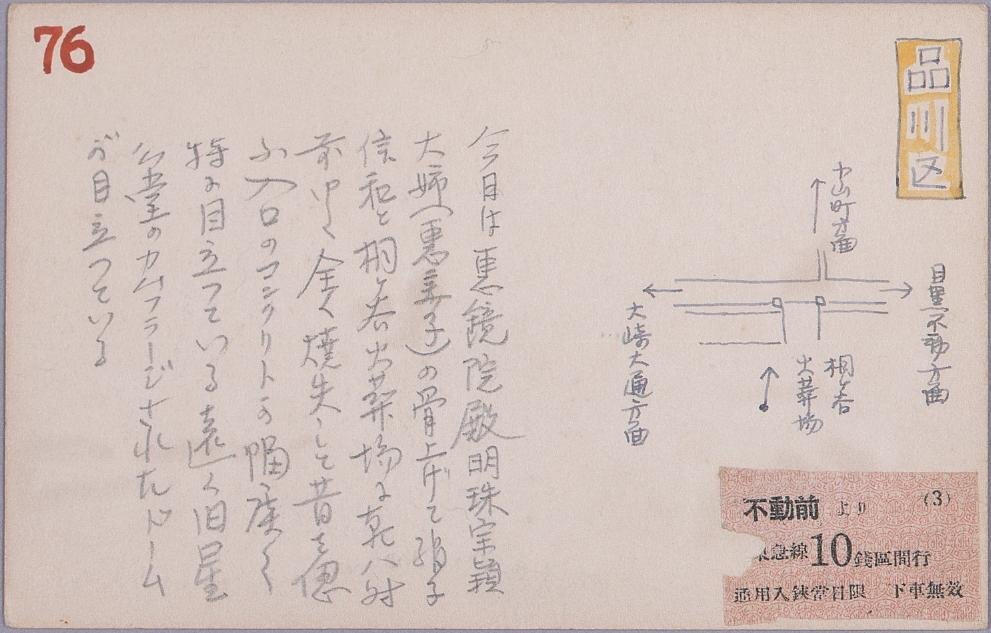 76
品川区
小山町方面
目黒不動方面
大崎大通方面
桐ヶ谷
火葬場
今日は恵鏡院殿明珠宗穎
大姉(恵美子)の骨上げで
信和と桐ヶ谷火葬場に
前中 全く焼失して昔を偲
ぶ入口のコンクリートの幅広く
特に目立っている 遠く旧星
公堂のカムフラージされたドーム
が目立っている
不動前 より (3)
急線10錢區間行
通用入鋏當日限 下車無效